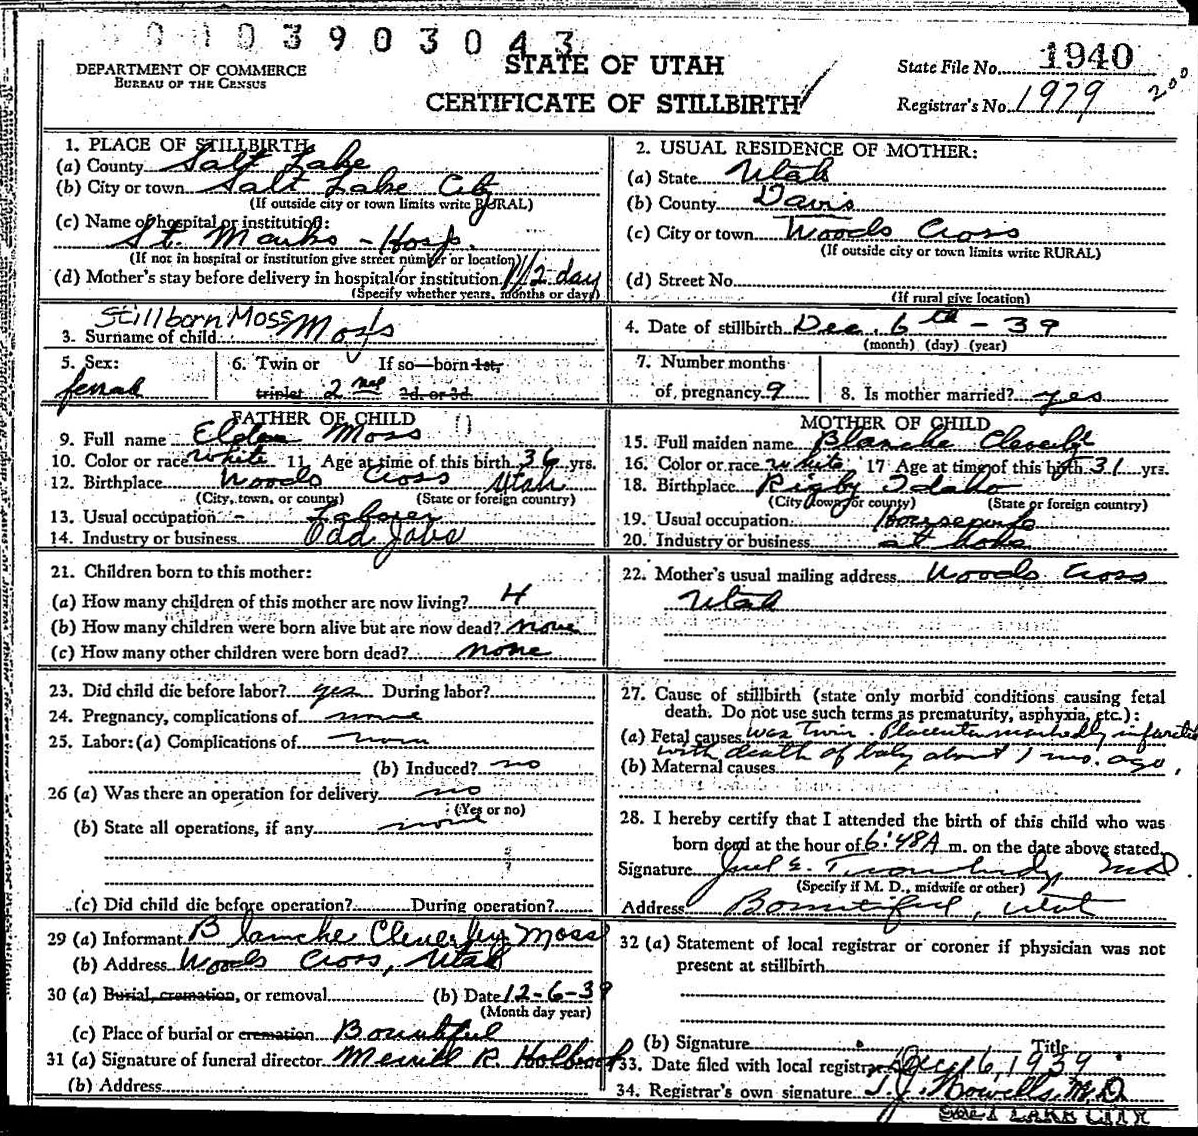 0 0 0 0 3 9 0 3 0 4 3
DEPARTMENT OF COMMERCE
BUREAU OF THE CENSUS
STATE OF UTAH
CERTIFICATE OF STILLBIRTH
State File No. 1940
Registrar's No. 1979
200
1. PLACE OF STILLBIRTH
(a) County Salt Lake
(b) City or town Salt Lake City
(If outside city or town limits write RURAL)
(c) Name of hospital or institution:
St. Marks - Hosp.
(If not in hospital or institution give street number or location)
(d) Mother's stay before delivery in hospital or institution 1/2 day
(Specify whether years, months or days)
2. USUAL RESIDENCE OF MOTHER:
(a) State Utah
(b) County Davis
(c) City or town Woods Cross
(If outside city or town limits write RURAL)
(d) Street No.
(If rural give location)
Stillborn Moss
3. Surname of child Moss
4. Date of stillbirth Dec. 6th - 39
(month) (day) (year)
5. Sex:
female
6. Twin or If so—born 1st,
triplet 2nd 2d. or 3d.
7. Number months
of pregnancy 9
8. Is mother married? yes
FATHER OF CHILD
9. Full name Elden Moss
10. Color or race white 11 Age at time of this birth 36 yrs.
12. Birthplace Woods Cross Utah
(City, town, or county) (State or foreign country)
13. Usual occupation - Laborer
14. Industry or business Odd Jobs
MOTHER OF CHILD
15. Full maiden name Blanche Cleverly
16. Color or race white 17 Age at time of this birth 31 yrs.
18. Birthplace Rigby Idaho
(City town or county) (State or foreign country)
19. Usual occupation housewife
20. Industry or business at home
21. Children born to this mother:
(a) How many children of this mother are now living? 4
(b) How many children were born alive but are now dead? none
(c) How many other children were born dead? none
22. Mother's usual mailing address Woods Cross
Utah
23. Did child die before labor? yes During labor?
24. Pregnancy, complications of none
25. Labor: (a) Complications of none
(b) Induced? no
26 (a) Was there an operation for delivery no
(Yes or no)
(b) State all operations, if any none
(c) Did child die before operation? During operation?
27. Cause of stillbirth (state only morbid conditions causing fetal
death. Do not use such terms as prematurity, asphyxia, etc.):
(a) Fetal causes was Twin. Placenta markedly infarcted
with death of baby about 1 mo. ago,
(b) Maternal causes
28. I hereby certify that I attended the birth of this child who was
born dead at the hour of 6:48A m. on the date above stated.
Signature Trowbridge MD.
(Specify if M. D., midwife or other)
Address Bountiful, Utah
29 (a) Informant Blanche Cleverley Moss
(b) Address Woods Cross, Utah
30 (a) Burial, cremation, or removal (b) Date 12-6-39
(Month day year)
(c) Place of burial or cremation Bountiful
31 (a) Signature of funeral director Merrill R. Holbrook
(b) Address
32 (a) Statement of local registrar or coroner if physician was not
present at stillbirth
(b) Signature Title
33. Date filed with local registrar Dec 16, 1939
34. Registrar's own signature T. J. Howells, M.D.
SALT LAKE CITY